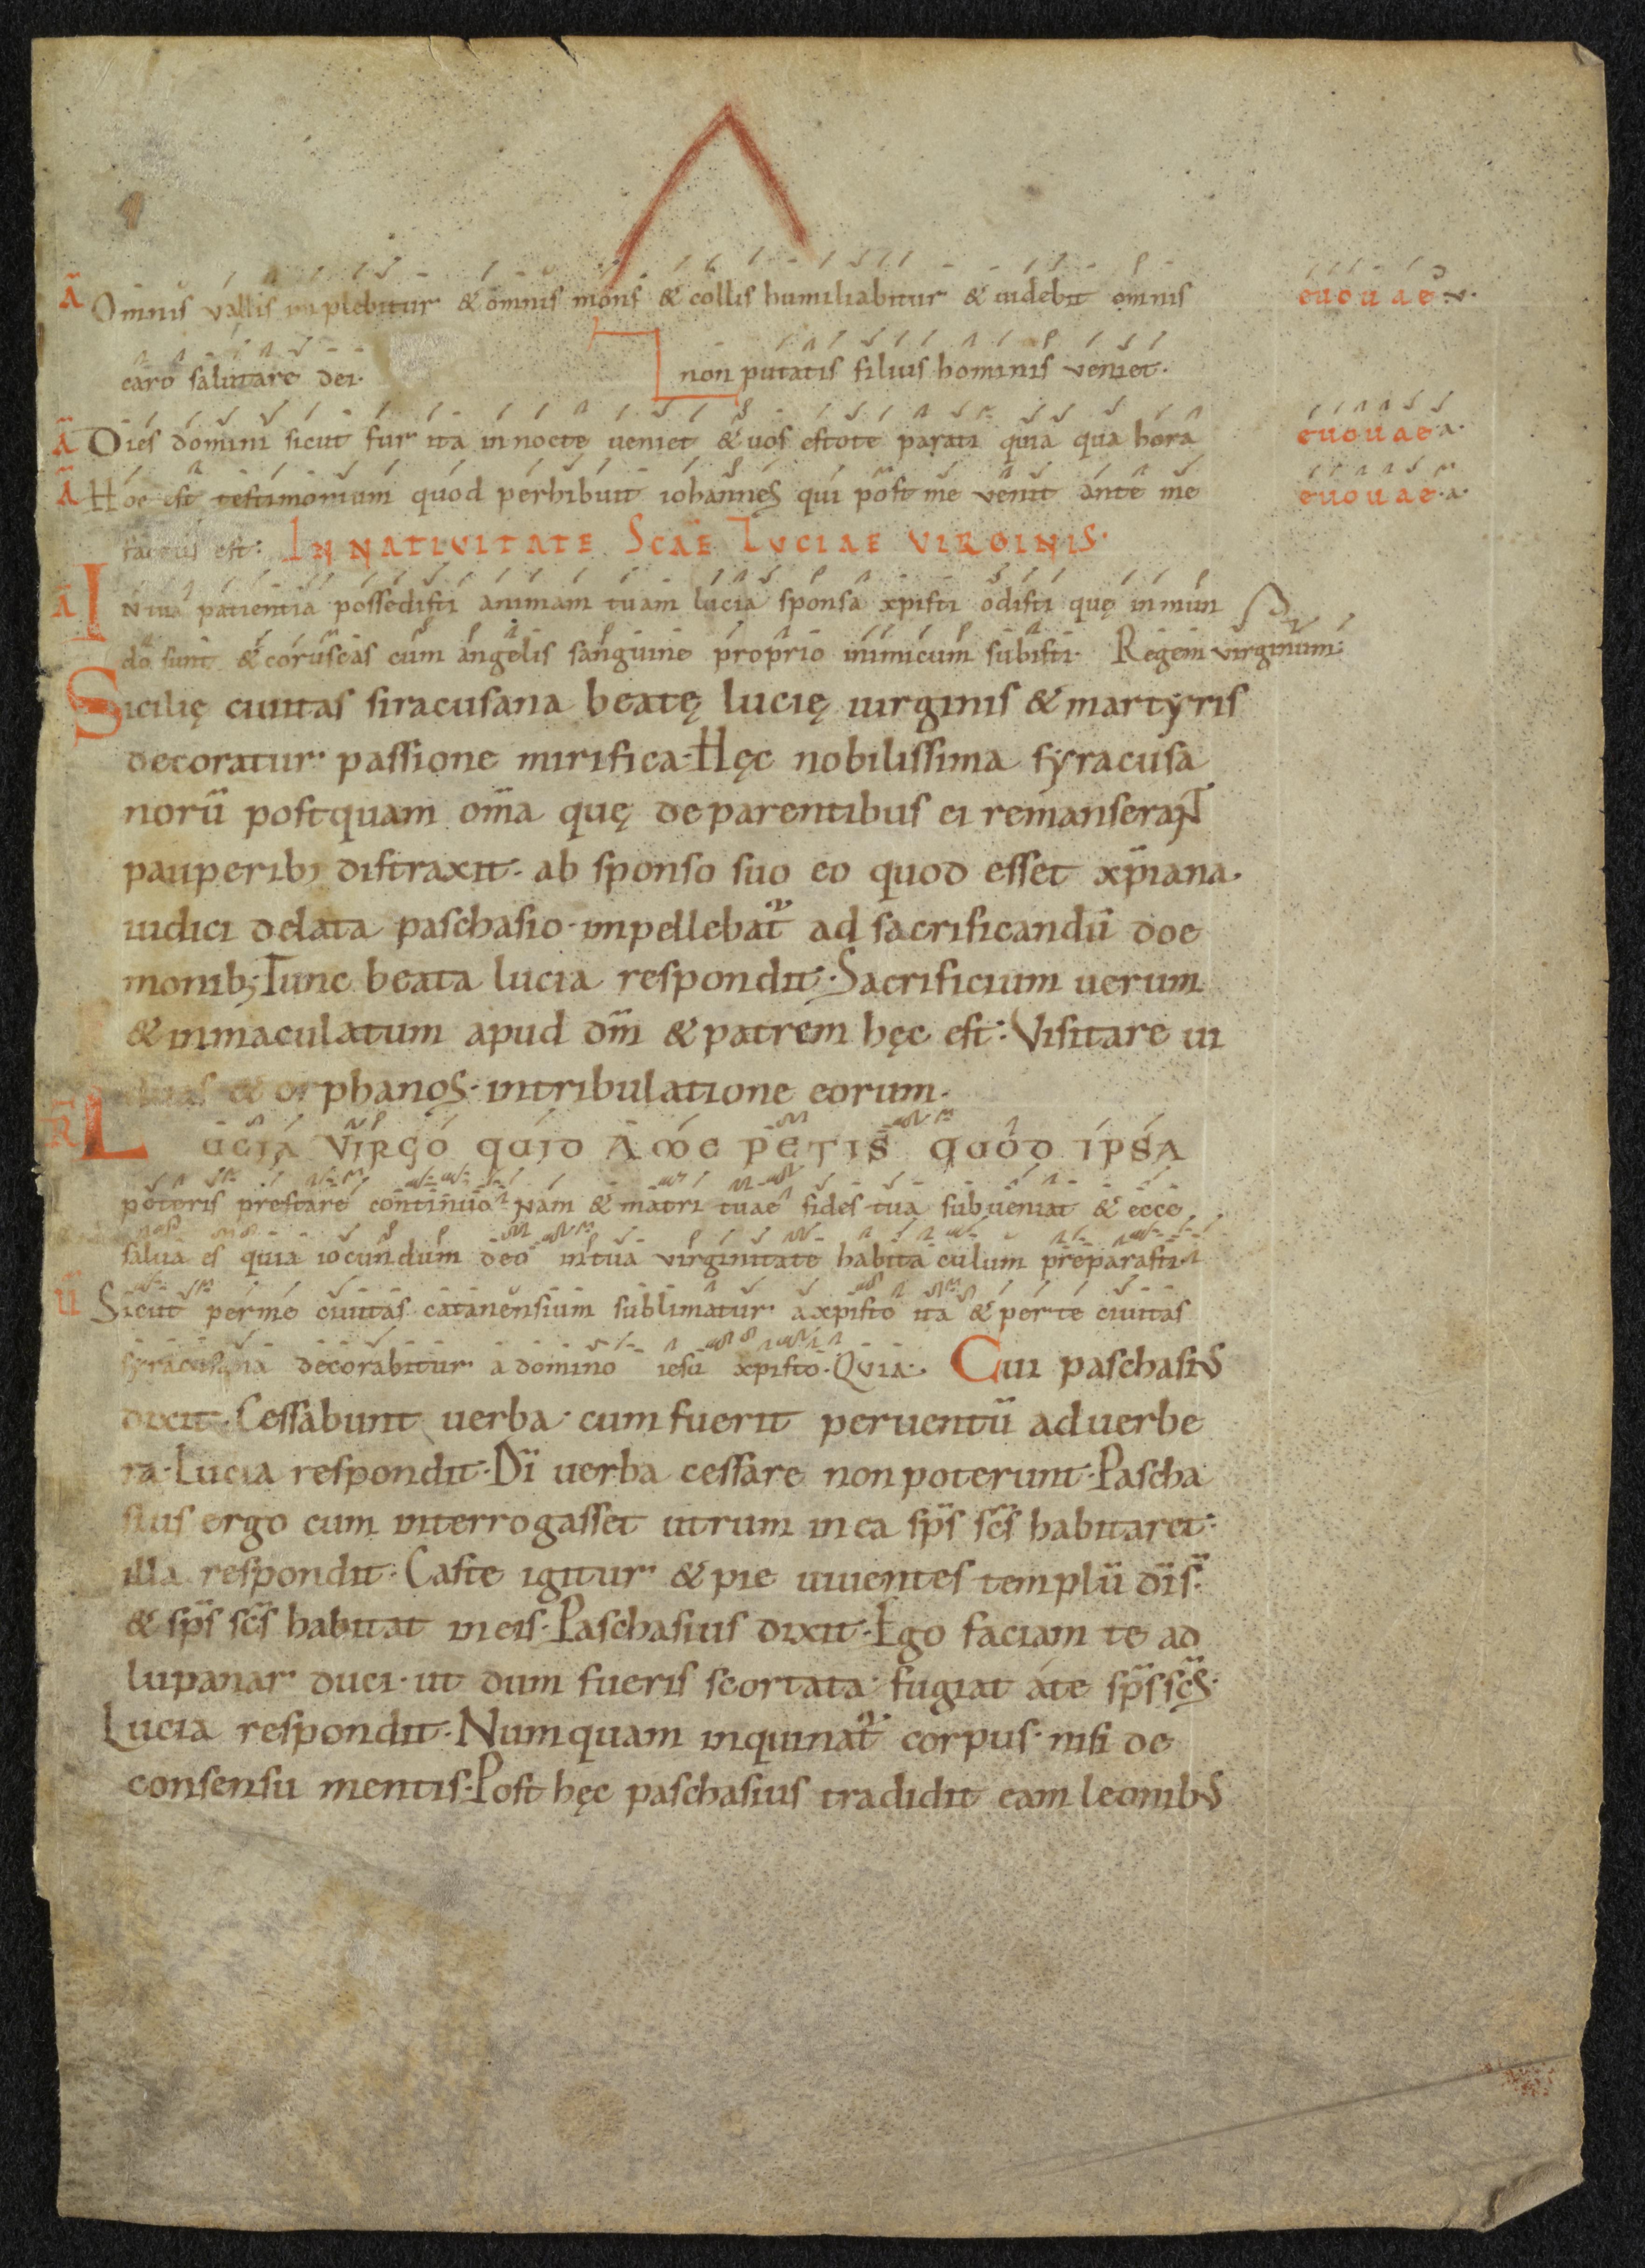 Ā Omnis vallis implebitur & omnis mons & collis humiliabitur & uidebit omnis euouae .v.
caro salutare dei. non putatis filius hominis veniet.
Ā Dies domini sicut fur ita in nocte ueniet & uos estote parati quia qua hora euouae .a.
Ā Hoc est testimonium quod perhibuit iohannes qui post me venit ante me euouae .a.
factus est: IN NATIUITATE SCĀE LUCIAE VIRGINIS.
Ā IN tua patientia possedisti animam tuam lucia sponsa xpisti odisti quę in mun
do sunt & coruscas cum angelis sanguine proprio inimicum subisti. Regem virginum:
Sicilię ciuitas siracusana beatę lucię uirginis & martyris
decoratur passione mirifica. Hęc nobilissima syracusa
norū postquam om̄a quę de parentibus ei remanserant
pauperib; distraxit. ab sponso suo eo quod esset xp̄iana.
iudici delata paschasio. impellebat᷑ ad sacrificandū doe
monib; Tunc beata lucia respondit. Sacrificium uerum
& inmaculatum apud dm̄ & patrem hęc est: Visitare ui
duas & orphanos. in tribulatione eorum.
R̄ LUCIA VIRGO QUID A ME PETIS QUOD IPSA
poteris prestare continuo Nam & matri tuae fides tua subueniat & ecce
salua es quia iocundum deo in tua virginitate habitaculum preparasti
ū Sicut per me ciuitas catanensium sublimatur a xpisto ita & per te ciuitas
syracusana decorabitur a domino iesu xpisto. Quia. Cui paschasius
dixit. Cessabunt uerba. cum fuerit peruentū ad uerbe
ra. Lucia respondit. Dī uerba cessare non poterunt. Pascha
sius ergo cum interrogasset utrum in ea sp̄s sc̄s habitaret.
illa respondit. Caste igitur & pie uiuentes templū dī s̄.
& sp̄s sc̄s habitat in eis. Paschasius dixit. Ego faciam te ad
lupanar duci. ut dum fueris scortata fugiat a te sp̄s sc̄s.
Lucia respondit. Numquam inquinat᷑ corpus. nisi de
consensu mentis. Post hęc paschasius tradidit eam leonibus